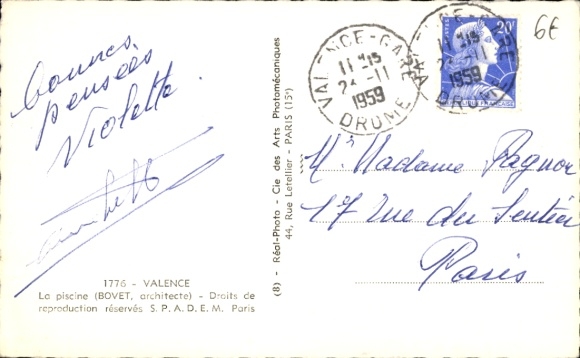 Bonnes
pensées
Violette
1776 - VALENCE
La piscine (BOVET, architecte) - Droits de
reproduction réservés S. P. A. D. E. M. Paris
(8) - Réal-Photo - Cie des Arts Photomécaniques
44, Rue Letellier - PARIS (15e)
VALENCE-GARE
11 H15
24-11
1959
DROME
VALENCE-GARE
11 H15
24-11
1959
DROME
20F
POSTES
REPUBLIQUE FRANÇAISE
6€
Mr Madame Pagnon
17 Rue du Sentier
Paris